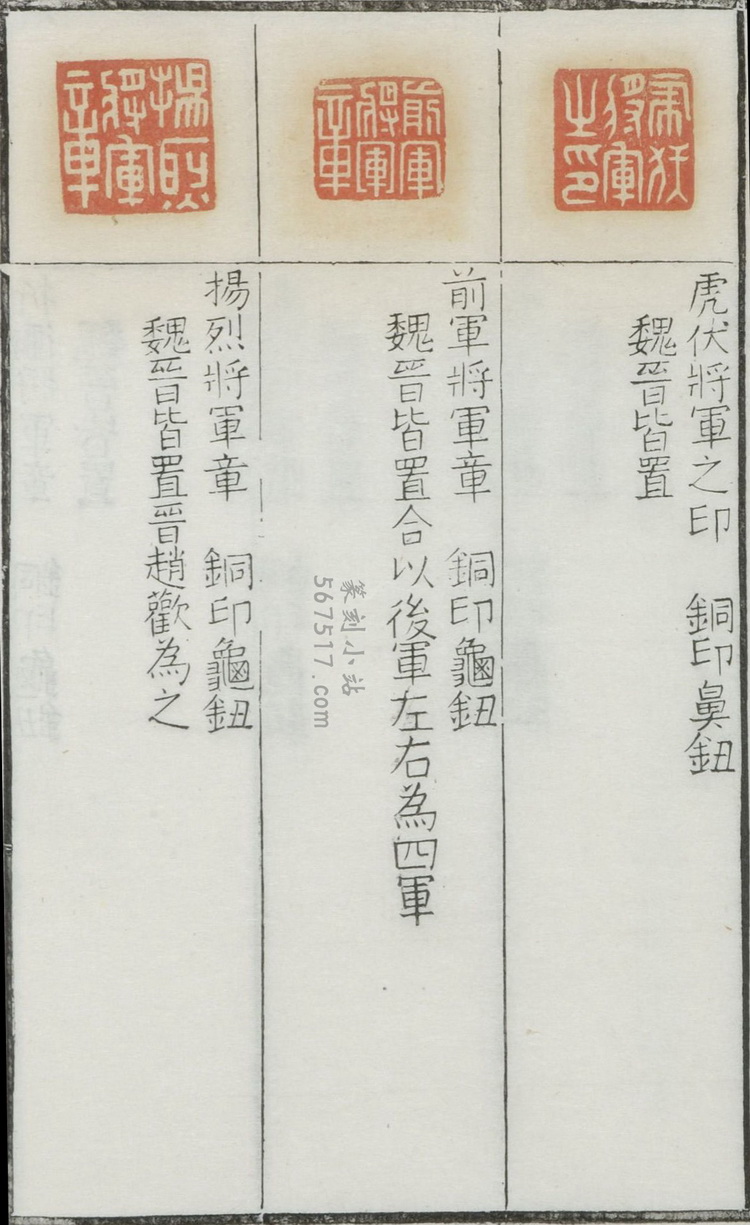 虎伏將軍之印　銅印鼻鈕
魏晉皆置
前軍將軍章　銅印龜鈕
魏晉皆置合以後軍左右為四軍
揚烈將軍章　銅印龜鈕
魏晉皆置晉趙歡為之
前軍將軍章
揚烈將軍章
篆刻小站
567517.com